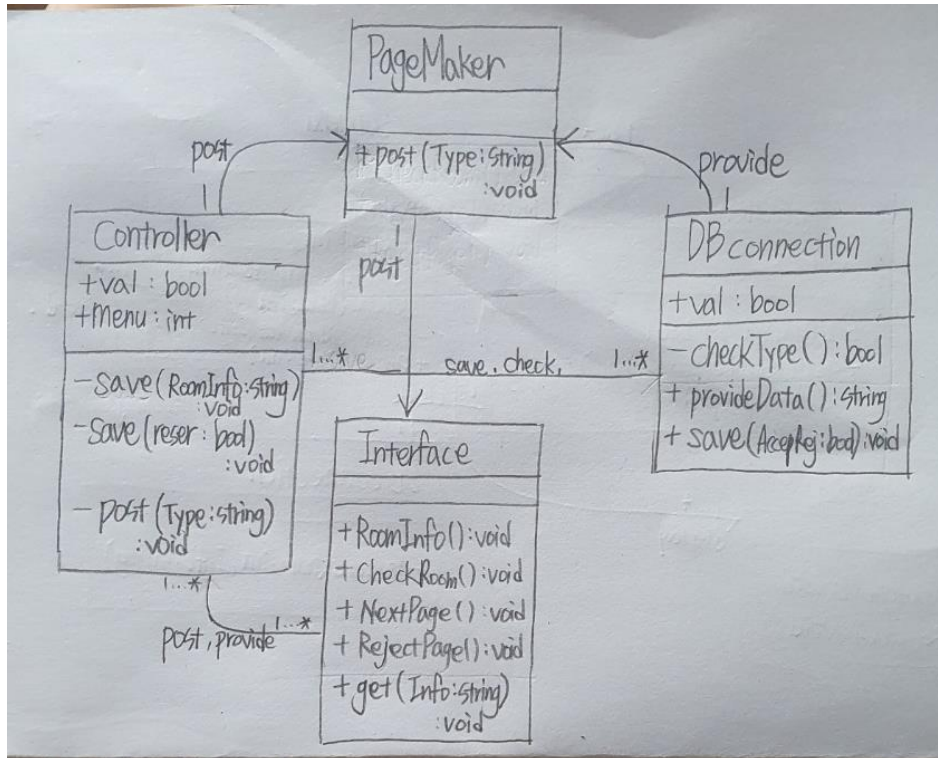 PageMaker
+ post (Type : String)
: void
post
1
provide
1
Controller
+val : bool
+Menu : int
- save (RoomInfo : string)
: void
- save (reser : bool)
: void
- post (Type : string)
: void
1
post
DBconnection
+val : bool
- checkType () : bool
+ provideData () : string
+ save (AccepRej : bool) : void
1...*
save, check,
1...*
Interface
+ RoomInfo() : void
+ CheckRoom() : void
+ NextPage () : void
+ RejectPage() : void
+ get (Info : string)
: void
1...*
1...*
post, provide